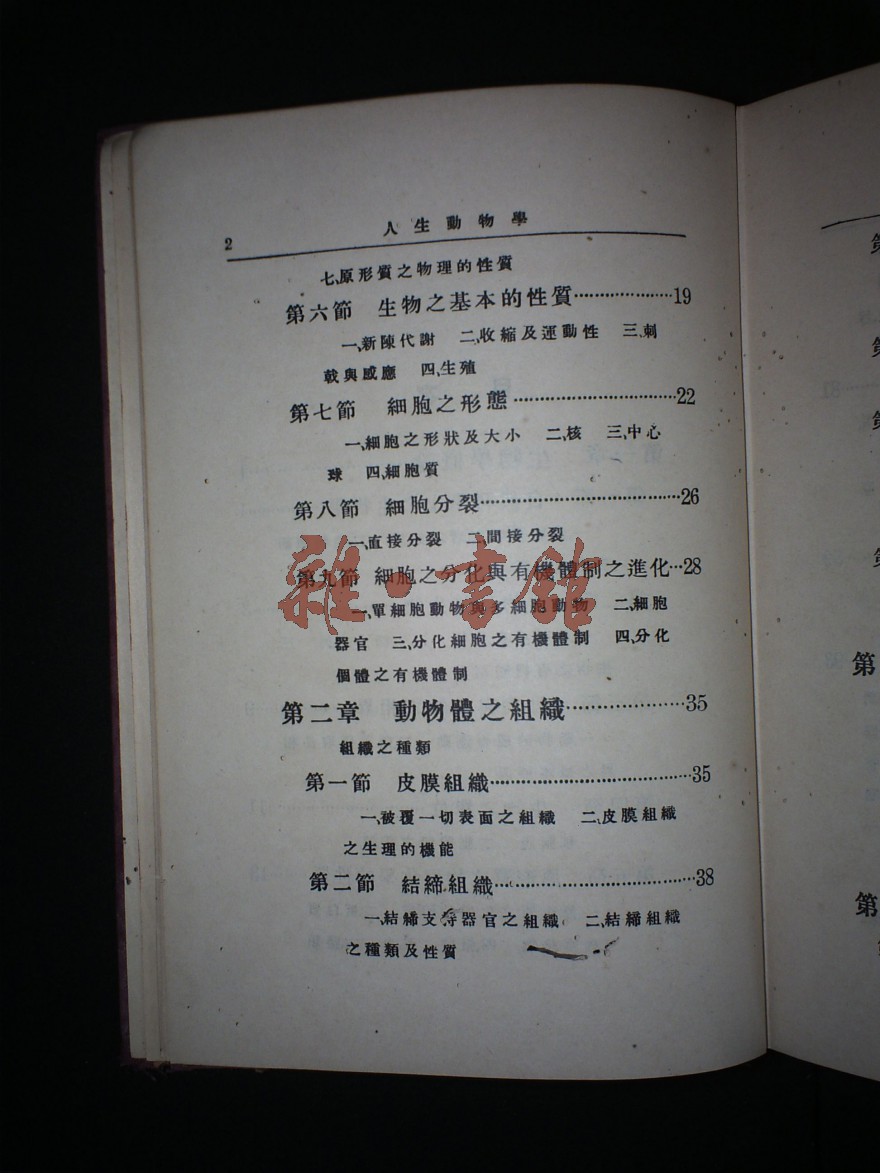 2 人生動物學
七、原形質之物理的性質
第六節 生物之基本的性質…………………19
一、新陳代謝 二、收縮及運動性 三、刺
戟與感應 四、生殖
第七節 細胞之形態……………………………22
一、細胞之形狀及大小 二、核 三、中心
球 四、細胞質
第八節 細胞分裂……………………………………26
一、直接分裂 二、間接分裂
第九節 細胞之分化與有機體制之進化…28
一、單細胞動物與多細胞動物 二、細胞
器官 三、分化細胞之有機體制 四、分化
個體之有機體制
第二章 動物體之組織…………………35
組織之種類
第一節 皮膜組織……………………………………35
一、被覆一切表面之組織 二、皮膜組織
之生理的機能
第二節 結締組織……………………………………38
一、結締支持器官之組織 二、結締組織
之種類及性質
雜·書館
第
第
第
第
第
第